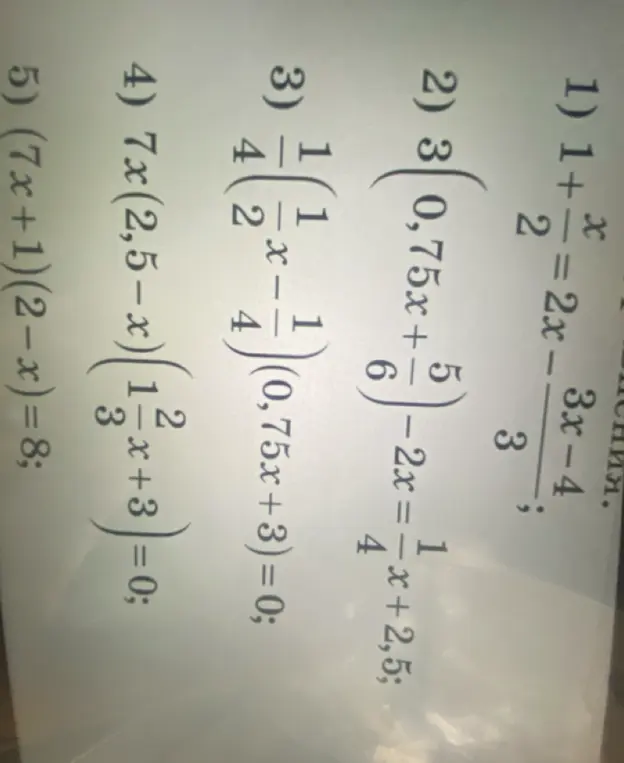 1) 1 + x/2 = 2x - (3x - 4)/3;
2) 3(0,75x + 5/6) - 2x = 1/4 x + 2,5;
3) 1/4(1/2 x - 1/4)(0,75x + 3) = 0;
4) 7x(2,5 - x)(1 2/3 x + 3) = 0;
5) (7x + 1)(2 - x) = 8;